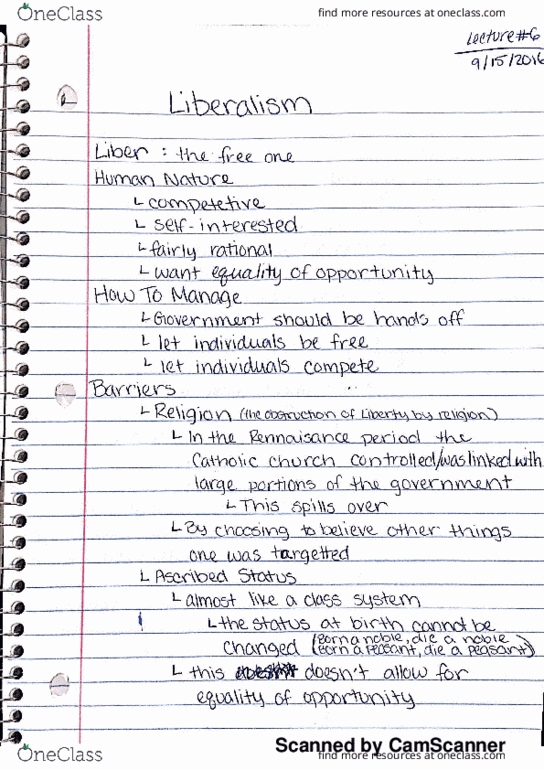 OneClass
find more resources at oneclass.com
Lecture#6
9/15/2016
Liberalism
Liber : the free one
Human Nature
└ competetive
└ self-interested
└ fairly rational
└ want equality of opportunity
How To Manage
└ Government should be hands off
└ let individuals be free
└ let individuals compete
Barriers
└ Religion (the obstruction of liberty by religion)
└ In the Rennaisance period the
Catholic church controlled/was linked with
large portions of the government
└ This spills over
└ By choosing to believe other things
one was targetted
└ Ascribed Status
└ almost like a class system
└ the status at birth cannot be
changed (Born a noble, die a noble
Born a peasant, die a peasant)
└ this doesn't allow for
equality of opportunity
OneClass
Scanned by CamScanner
find more resources at oneclass.com